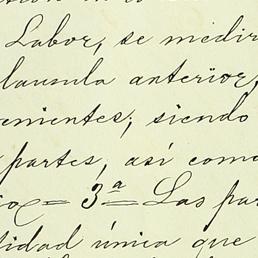 Labor, se medir
lausula anterior,
enientes; siendo
partes, así como
io = 3ª = Las par
tidad única que